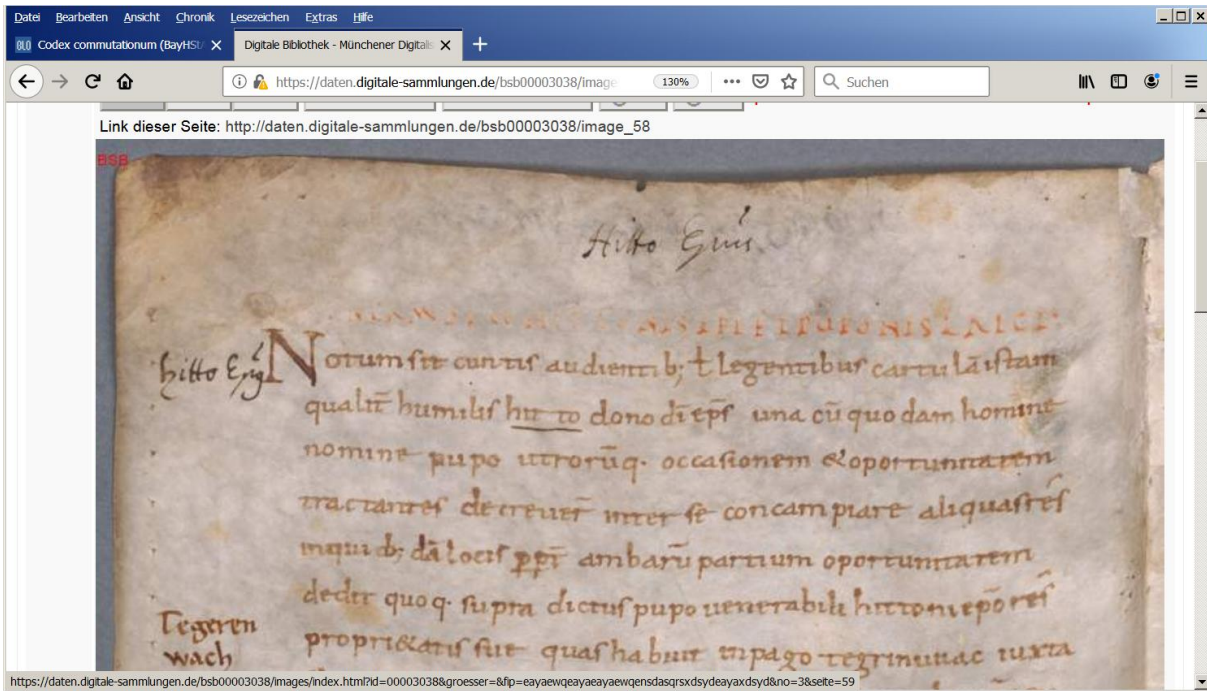 Datei Bearbeiten Ansicht Chronik Lesezeichen Extras Hilfe
BLO Codex commutationum (BayHSt/ Digitale Bibliothek - Münchener Digitalis
https://daten.digitale-sammlungen.de/bsb00003038/image 130% Suchen
Link dieser Seite: http://daten.digitale-sammlungen.de/bsb00003038/image_58
BSB
Hitto
hitto
Notum sit cunctis audientib; ł legentibus cartulā istam
qualit̄ humilis hitto dono dī ep̄s una cū quodam homine
nomine pupo utrorūq. occasionem & oportunitatem
tractantes decreuer̄ inter se concampiare aliquas res
in quib; dā locis ꝑpt̄ ambarū partium oportunitatem
dedit quoq. supra dictus pupo uenerabili hittoni epō res
propri&atis sue quas habuit in pago tegrinuuac iuxta
Tegeren
wach
https://daten.digitale-sammlungen.de/bsb00003038/images/index.html?id=00003038&groesser=&fip=eayaewqeayaeayaewqensdasqrsxdsydeayaxdsyd&no=3&seite=59